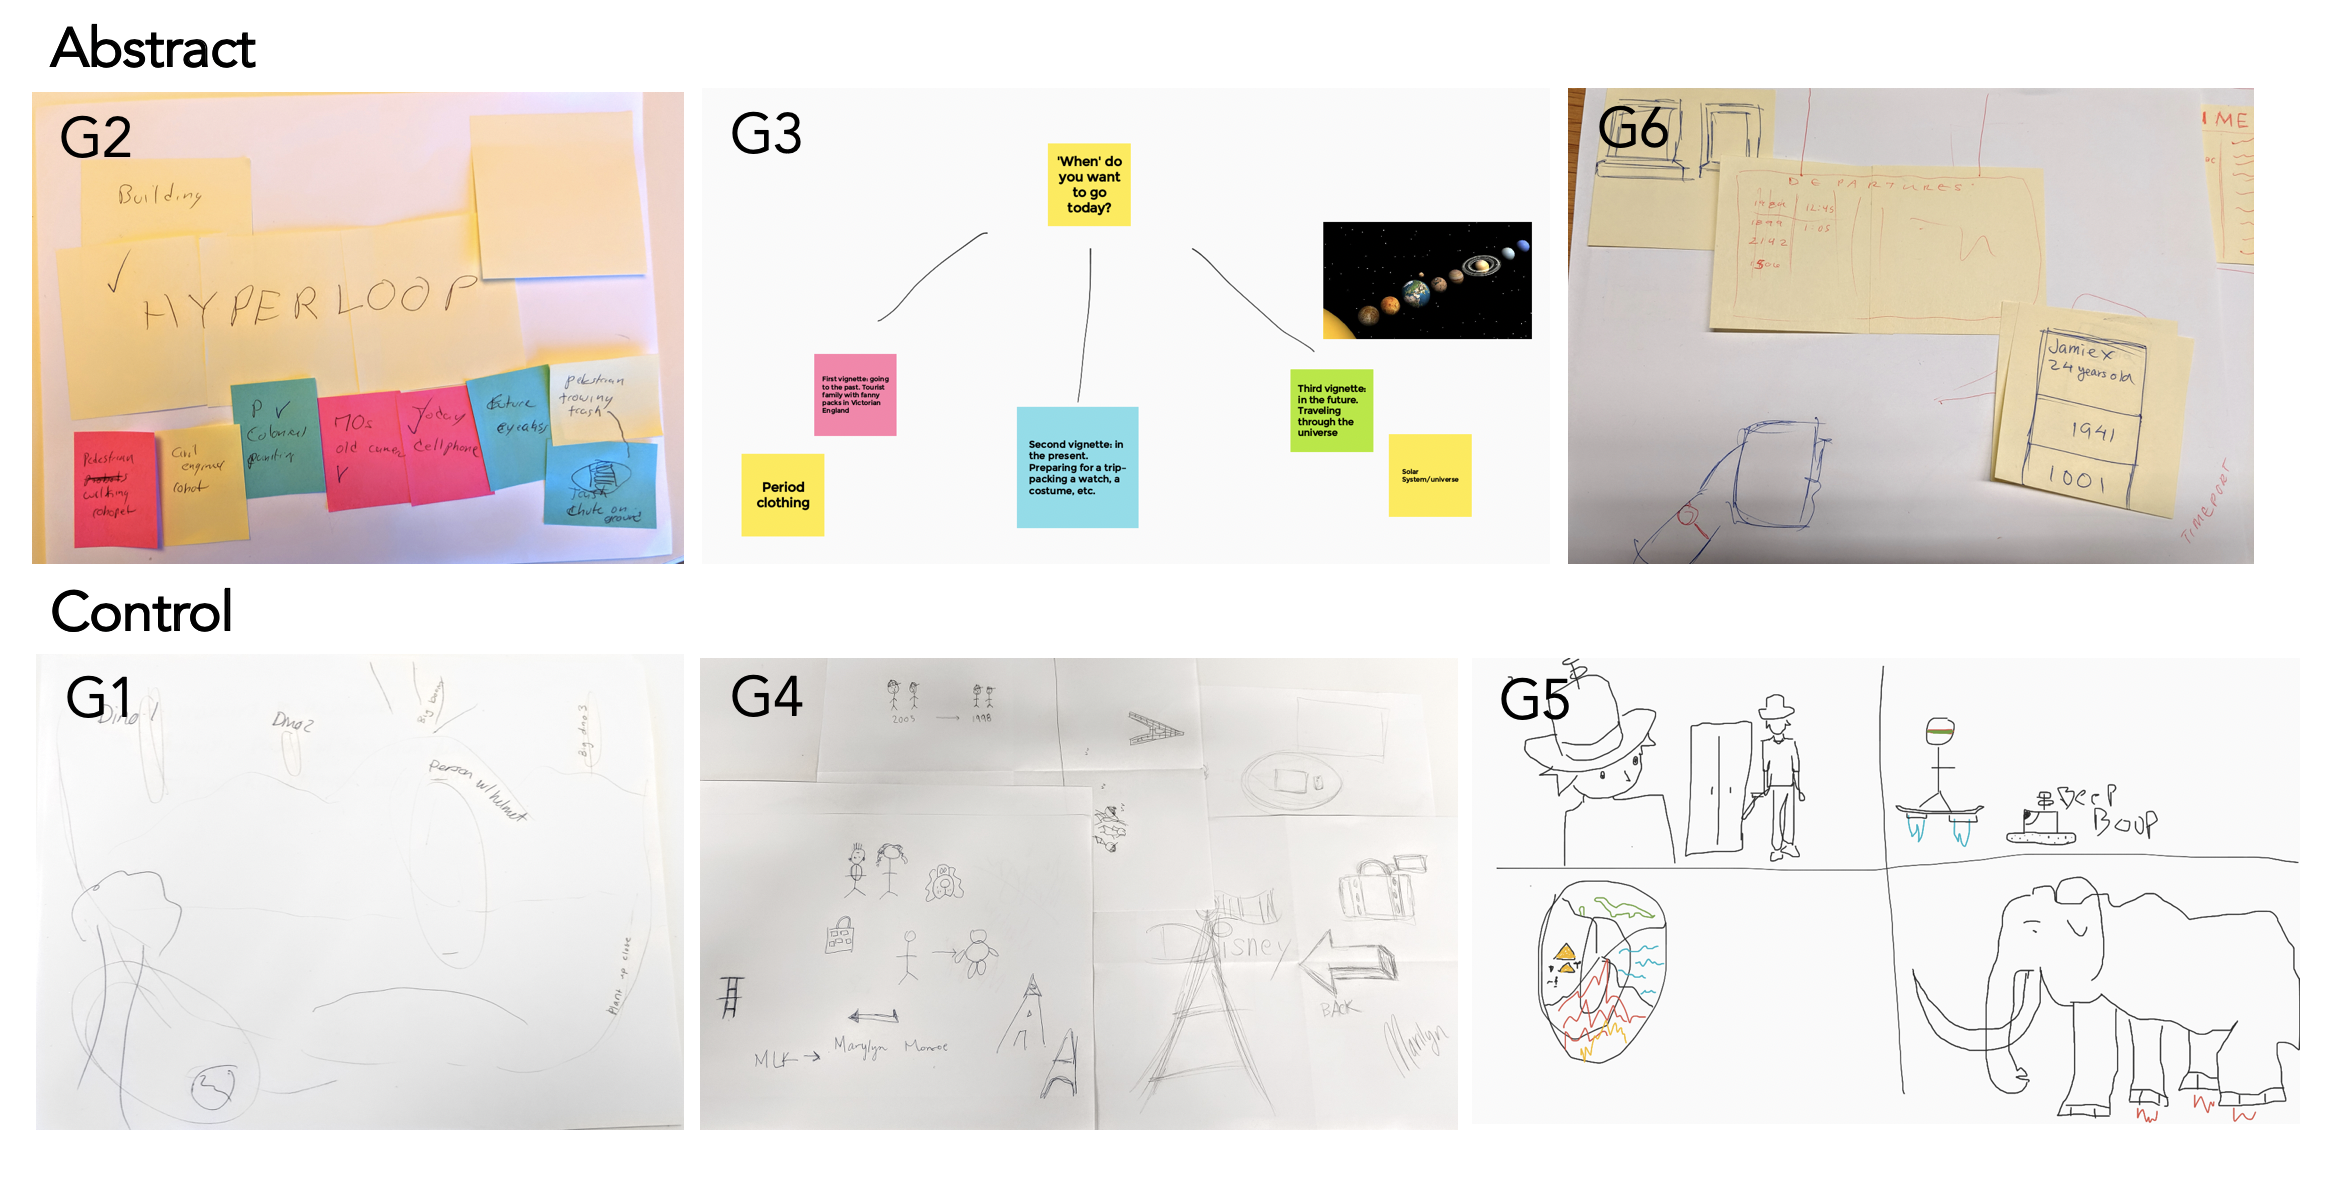 Abstract
G2
Building
✓
HYPERLOOP
P ✓
70s
old
✓
Today
cellphone
future
pedestrian
trowing
trash
Pedestrian
walking
robopet
Civil
engineer
robot
Chute on
ground
G3
'When' do
you want
to go
today?
First vignette: going
to the past. Tourist
family with fanny
packs in Victorian
England
Period
clothing
Second vignette: in
the present.
Preparing for a trip-
packing a watch, a
costume, etc.
Third vignette:
in the future.
Traveling
through the
universe
Solar
System/universe
G6
DEPARTURES
12:45
1899
1:05
2142
1506
IME
Jamie X
24 years old
1941
1001
TIMEPORT
Control
G1
Dino 1
Dino2
Big
Big dino 3
Person w/helmet
Plant up close
G4
2005 → 1998
MLK → Marylyn Monroe
Disney
BACK
Marilyn
G5
BEEP
BOUP